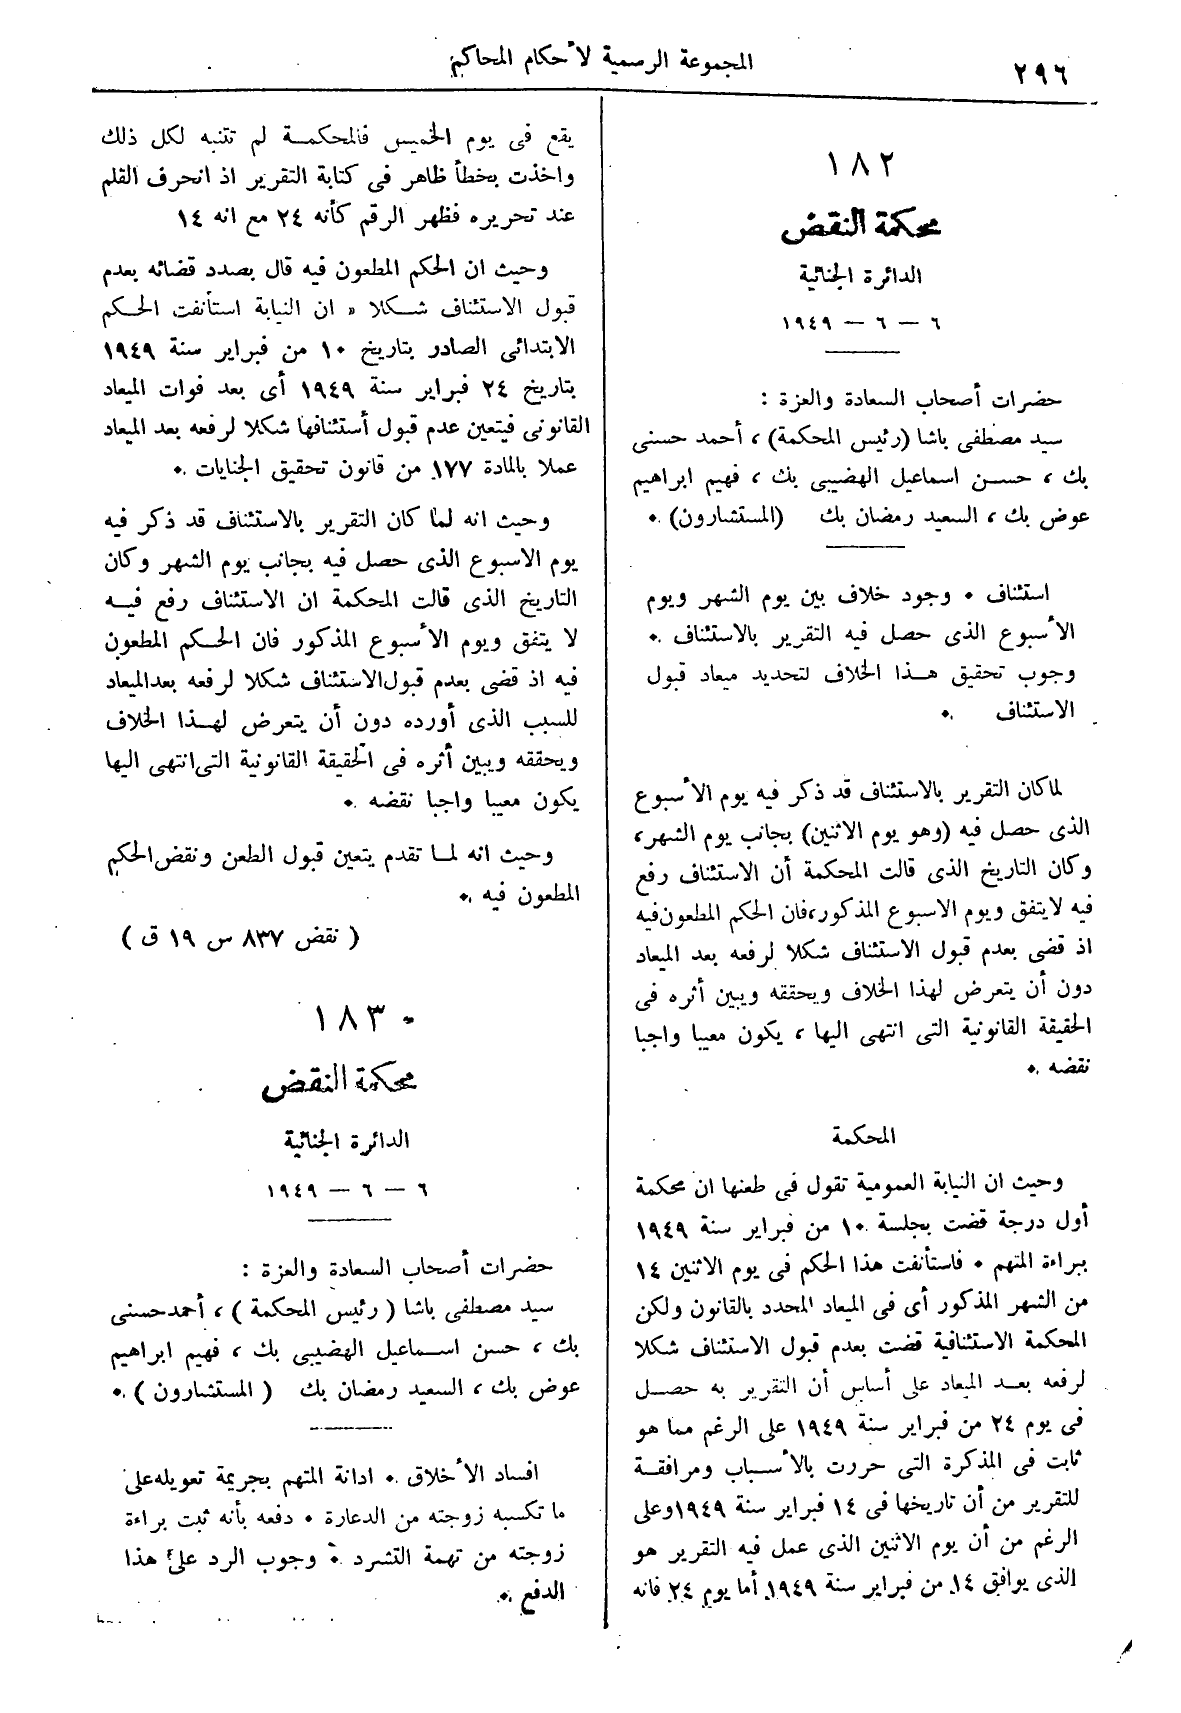 المجموعة الرسمية لأحكام المحاكم
٢٩٦
١٨٢
محكمة النقض
الدائرة الجنائية
٦ — ٦ — ١٩٤٩
حضرات أصحاب السعادة والعزة :
سيد مصطفى باشا (رئيس المحكمة) ، أحمد حسنى
بك ، حسن اسماعيل الهضيبى بك ، فهيم ابراهيم
عوض بك ، السعيد رمضان بك (المستشارون) .
استئناف . وجود خلاف بين يوم الشهر ويوم
الأسبوع الذى حصل فيه التقرير بالاستئناف .
وجوب تحقيق هذا الخلاف لتحديد ميعاد قبول
الاستئناف .
لما كان التقرير بالاستئناف قد ذكر فيه يوم الأسبوع
الذى حصل فيه (وهو يوم الاثنين) بجانب يوم الشهر ،
وكان التاريخ الذى قالت المحكمة أن الاستئناف رفع
فيه لايتفق ويوم الاسبوع المذكور، فان الحكم المطعون فيه
اذ قضى بعدم قبول الاستئناف شكلا لرفعه بعد الميعاد
دون أن يتعرض لهذا الخلاف ويحققه ويبين أثره فى
الحقيقة القانونية التى انتهى اليها ، يكون معيبا واجبا
نقضه .
المحكمة
وحيث ان النيابة العمومية تقول فى طعنها ان محكمة
أول درجة قضت بجلسة ١٠ من فبراير سنة ١٩٤٩
ببراءة المتهم . فاستأنفت هذا الحكم فى يوم الاثنين ١٤
من الشهر المذكور أى فى الميعاد المحدد بالقانون ولكن
المحكمة الاستئنافية قضت بعدم قبول الاستئناف شكلا
لرفعه بعد الميعاد على أساس أن التقرير به حصل
فى يوم ٢٤ من فبراير سنة ١٩٤٩ على الرغم مما هو
ثابت فى المذكرة التى حررت بالأسباب ومرافقة
للتقرير من أن تاريخها فى ١٤ فبراير سنة ١٩٤٩ وعلى
الرغم من أن يوم الاثنين الذى عمل فيه التقرير هو
الذى يوافق ١٤ من فبراير سنة ١٩٤٩ أما يوم ٢٤ فانه
يقع فى يوم الخميس فالمحكمة لم تتنبه لكل ذلك
واخذت بخطأ ظاهر فى كتابة التقرير اذ انحرف القلم
عند تحريره فظهر الرقم كأنه ٢٤ مع انه ١٤
وحيث ان الحكم المطعون فيه قال بصدد قضائه بعدم
قبول الاستئناف شكلا « ان النيابة استأنفت الحكم
الابتدائى الصادر بتاريخ ١٠ من فبراير سنة ١٩٤٩
بتاريخ ٢٤ فبراير سنة ١٩٤٩ أى بعد فوات الميعاد
القانونى فيتعين عدم قبول أستئنافها شكلا لرفعه بعد الميعاد
عملا بالمادة ١٧٧ من قانون تحقيق الجنايات .
وحيث انه لما كان التقرير بالاستئناف قد ذكر فيه
يوم الاسبوع الذى حصل فيه بجانب يوم الشهر وكان
التاريخ الذى قالت المحكمة ان الاستئناف رفع فيه
لا يتفق ويوم الأسبوع المذكور فان الحكم المطعون
فيه اذ قضى بعدم قبول الاستئناف شكلا لرفعه بعد الميعاد
للسبب الذى أورده دون أن يتعرض لهذا الخلاف
ويحققه ويبين أثره فى الحقيقة القانونية التى انتهى اليها
يكون معيبا واجبا نقضه .
وحيث انه لما تقدم يتعين قبول الطعن ونقض الحكم
المطعون فيه .
( نقض ٨٣٧ س ١٩ ق )
١٨٣
محكمة النقض
الدائرة الجنائية
٦ — ٦ — ١٩٤٩
حضرات أصحاب السعادة والعزة :
سيد مصطفى باشا ( رئيس المحكمة ) ، أحمد حسنى
بك ، حسن اسماعيل الهضيبى بك ، فهيم ابراهيم
عوض بك ، السعيد رمضان بك ( المستشارون ) .
افساد الأخلاق . ادانة المتهم بجريمة تعويله على
ما تكسبه زوجته من الدعارة . دفعه بأنه ثبت براءة
زوجته من تهمة التشرد . وجوب الرد على هذا
الدفع .